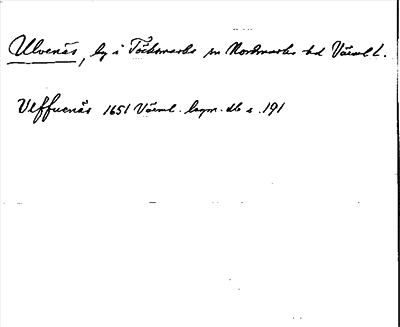 Ulvenäs, by i Töcksmarks sn Nordmarks hd Värml l.
Ulffuenäs 1651 Värml. lagm. db s. 191